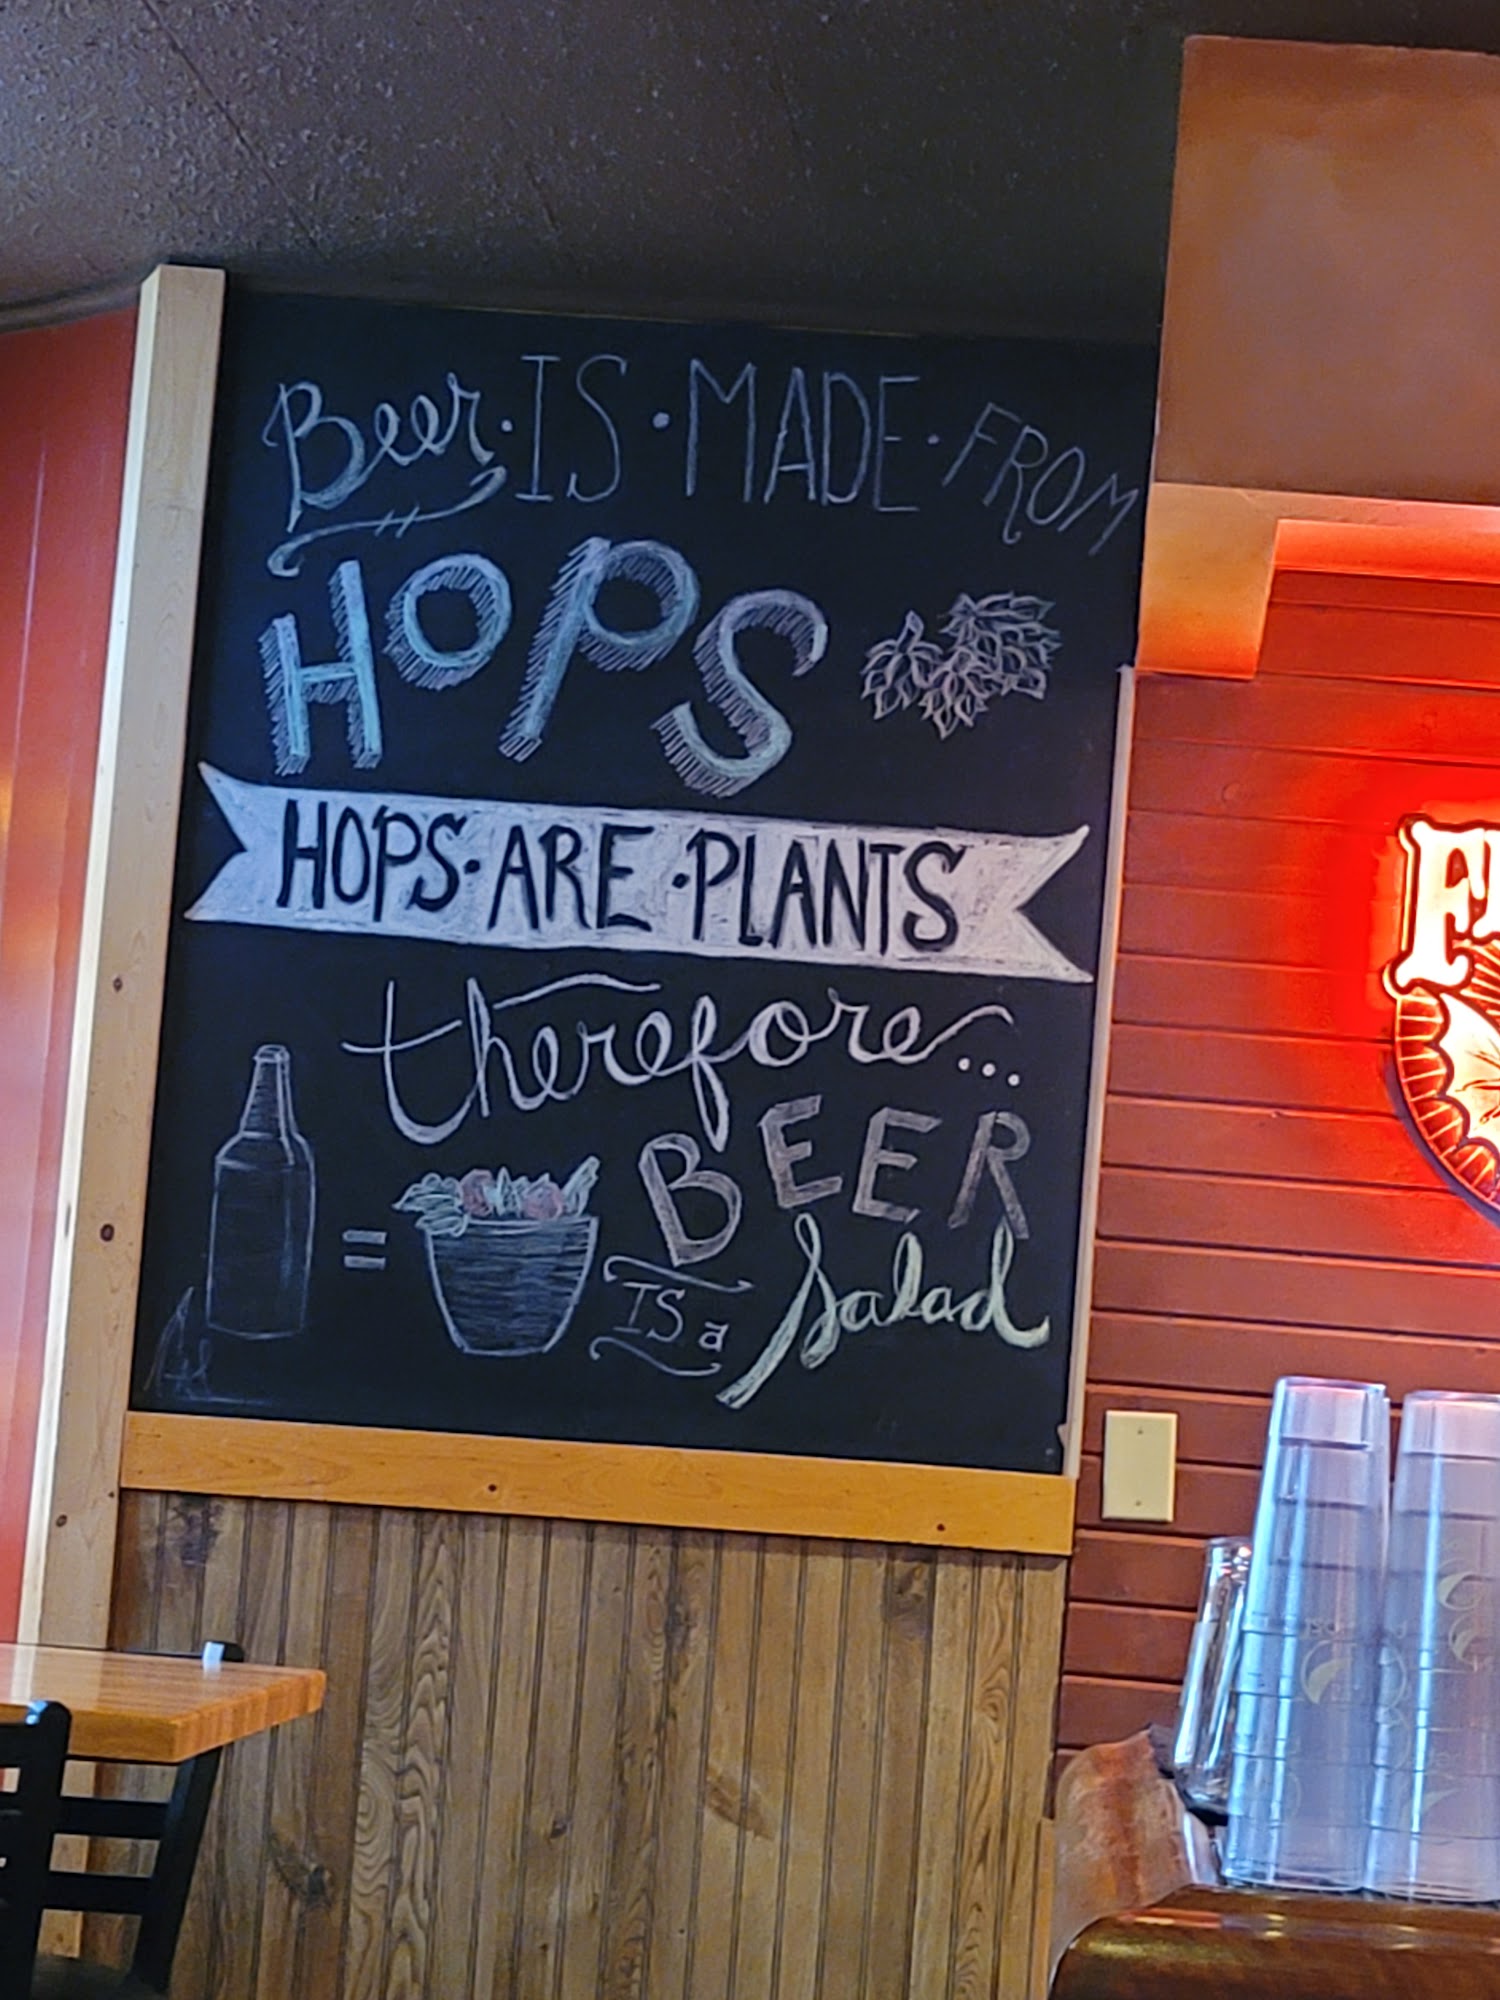 Beer·IS·MADE·FROM
HOPS
HOPS·ARE·PLANTS
therefore...
BEER
=
IS a Salad